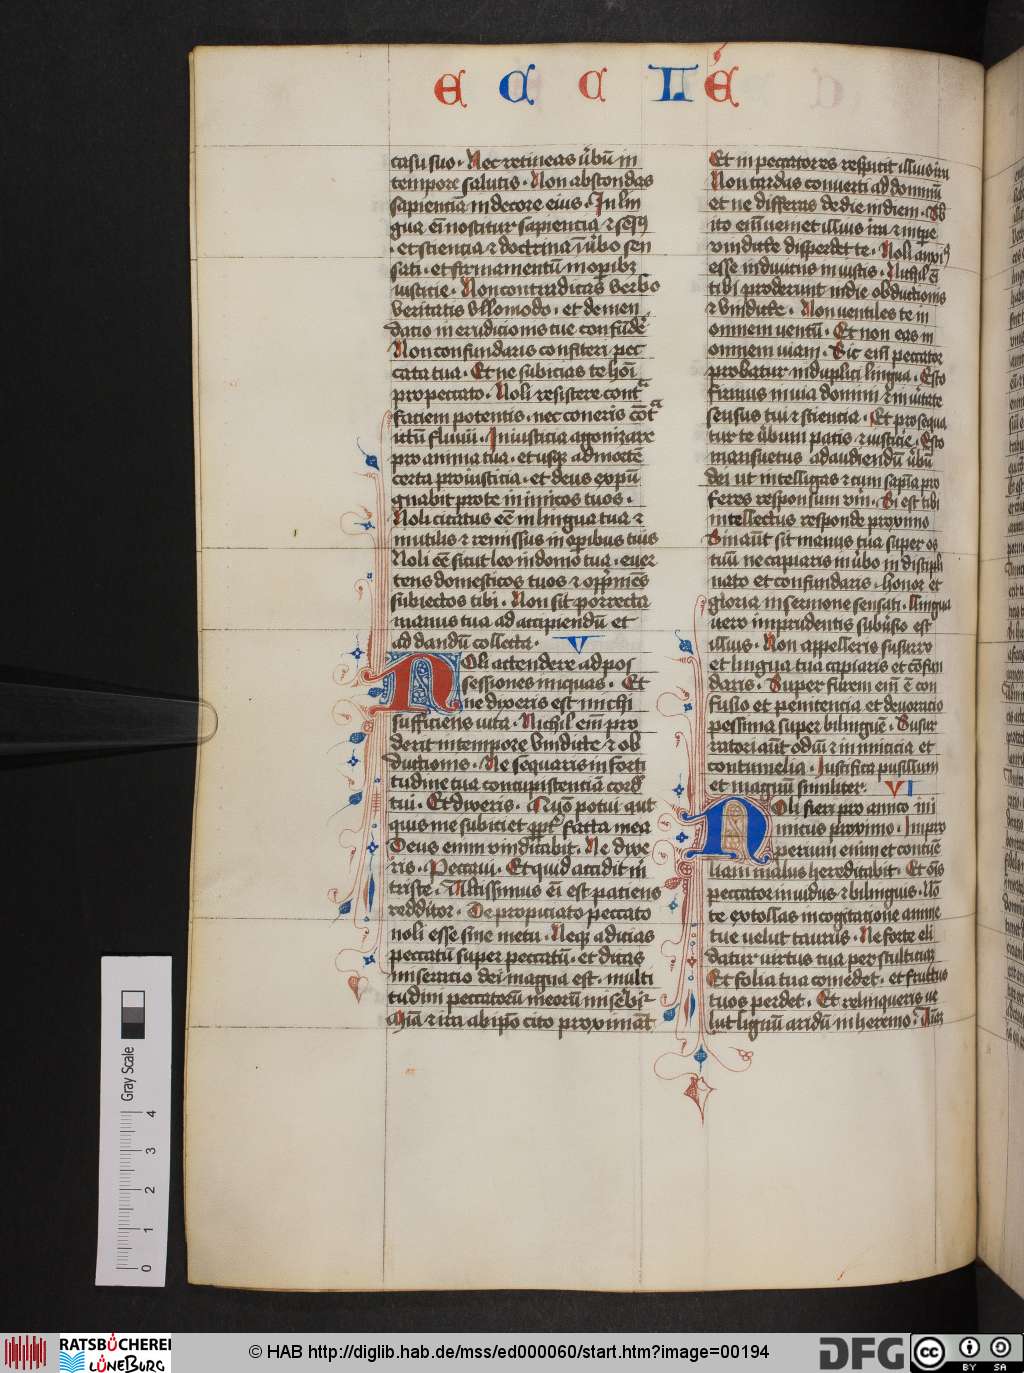 E C C L E
casu suo. Nec retineas ůbū in
tempore salutis. Non abscondas
sapienciā in decore eius. In lin
gua ei noscitur sapiencia ⁊ sēsꝰ
et sciencia ⁊ doctrina ī ůbo sen
sati. et firmamentū in operibꝫ
iusticie. Non contradicas verbo
veritatis vllo modo. et de men
datio in erudicionis tue confūdeˢ
Non confundaris confiteri pec
cata tua. Et ne subicias te hoī
pro peccato. Noli resistere contͣ
faciem potentis. nec coneris cōtͣ
ictū fluuii. In iusticia agonizare
pro anima tua. et usqꝫ ad mortē
certa pro iusticia. et deus expū
gnabit pro te inimicos tuos.
Noli citatus eē in lingua tua ⁊
inutilis ⁊ remissus in oꝑibus tuis
Noli eē sicut leo in domo tua. euer
tens domesticos tuos ⁊ opprimēs
subiectos tibi. Non sit porrecta
manus tua ad accipiendū et
ad dandū collecta. V
Noli attendere ad pos
sessiones iniquas. Et
ne dixeris est michi
sufficiens uita. Nichil em̄ pro
derit in tempore vindicte ⁊ ob
ductionis. Ne sequaris in forti
tudine tua concupiscentiā cord̕
tui. Et dixeris. Quō potui aut
quis me subiciet ꝓpt̕ facta mea
Deus enim vindicabit. Ne dixe
ris. Peccaui. Et quid accidit m̄
triste. Altissimus ei est patiens
redditor. De propiciato peccato
noli esse sine metu. Neqꝫ adicias
peccatū super peccatū. et dicas
miseratio dei magna est. multi
tudini peccatorū meorū misebit̕
Mīa ⁊ ira ab ipō cito proximāt
Et in peccatores respicit illius ira
Non tardas conuerti ad dominū
et ne differas de die in diem. Sb̕
ito em̄ uemet illius ira ⁊ in tpe
vindicte disperdet te. Noli anxiꝰ
esse in diuiciis iniustis. Nichil eī
tibi proderunt in die obductionis
⁊ vindicte. Non ventiles te in
omnem uentū. Et non eas in
omnem uiam. Sic em̄ peccator
probatur in duplici lingua. Esto
firmus in uia domini ⁊ in ůitate
sensus tui ⁊ sciencia. Et prosequa
tur te ůbum pacis ⁊ iusticie. Esto
mansuetus ad audiendū ůbū
dei ut intelligas ⁊ cum sapīa pro
feres responsum vīn. Si est tibi
intellectus responde proximo
Sin aūt sit manus tua super os
tuū ne capiaris in ůbo indiscipli
nato et confundaris. honor et
gloria in sermone sensati. lingua
uero imprudentis subůsio est
illius. Non appelleris susurro
et lingua tua capiaris et cōfun
daris. Super furem em̄ ē con
fusio et penitencia et deuoratio
pessima super bilinguē. Susur
ratori aūt odiū ⁊ inimicicia et
contumelia. Iustifica pusillum
et magnū similiter. VI
Noli fieri pro amico ini
micus proximo. Inpro
perium enim et contūe
liam malus hereditabit. Et oīs
peccator inuidus ⁊ bilinguis. Nō
te extollas in cogitatione anime
tue uelut taurus. Ne forte eli
datur uirtus tua per stulticiaʒ
Et folia tua comedet. et fructus
tuos perdet. Et relinqueris ue
lut lignū aridū in heremo.
Gray Scale
0 1 2 3 4
RATSBÜCHEREI
LÜNEBURG
© HAB http://diglib.hab.de/mss/ed000060/start.htm?image=00194
DFG
cc BY SA